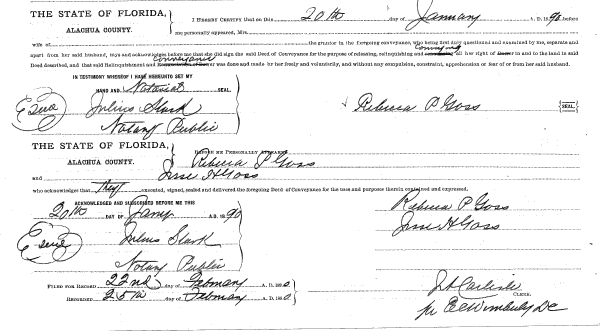 THE STATE OF FLORIDA,
ALACHUA COUNTY.
I HEREBY CERTIFY that on this 20th day of January A. D. 1890 before
me personally appeared, Mrs.
wife of the grantor in the foregoing conveyance, who being first duly questioned and examined by me, separate and
apart from her said husband, says and acknowledges before me that she did sign the said Deed of Conveyance for the purpose of releasing, relinquishing and conveying all her right of Dower in and to the land in said
Deed described, and that said Relinquishment and Conveyance of Dower was done and made by her freely and voluntarily, and without any compulsion, constraint, apprehension or fear of or from her said husband.
IN TESTIMONY WHEREOF I HAVE HEREUNTO SET MY
HAND AND Notarial SEAL.
Julius Slark
Notary Public
Rebecca P Goss {SEAL.}
THE STATE OF FLORIDA,
ALACHUA COUNTY.
BEFORE ME PERSONALLY APPEARED
Rebecca P Goss
and Jesse H Goss
who acknowledges that they executed, signed, sealed and delivered the foregoing Deed of Conveyance for the uses and purposes therein contained and expressed.
ACKNOWLEDGED AND SUBSCRIBED BEFORE ME THIS
20th DAY OF Jany A. D. 1890
Julius Slark
Notary Public
Rebecca P Goss
Jesse H Goss
FILED FOR RECORD 22nd day of February A. D. 1890
RECORDED 25th day of February A. D. 1890
J A Carlisle
CLERK.
pr E C Wimberly DC